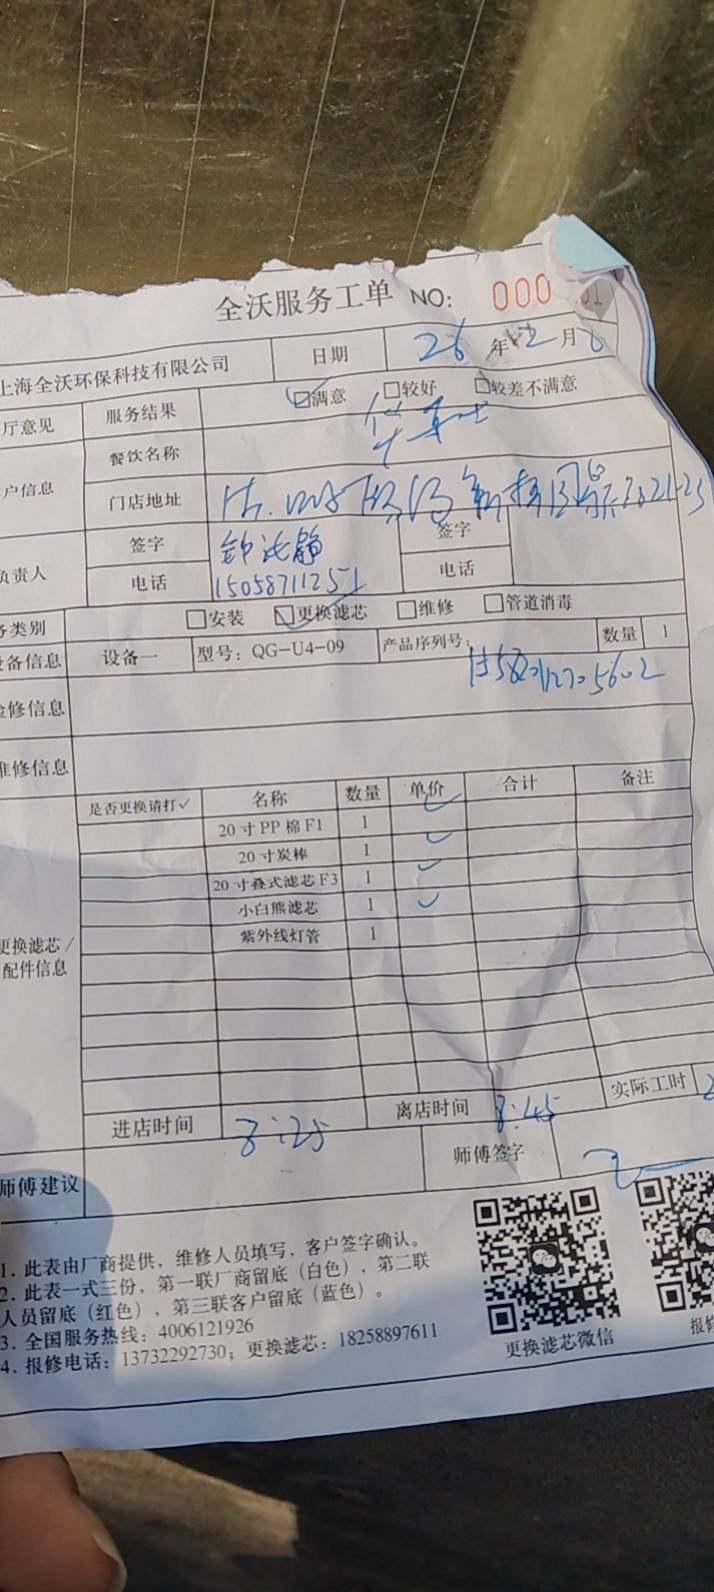 全沃服务工单 NO: 000
上海全沃环保科技有限公司 日期 26年2月6
厅意见 服务结果 ☑满意 □较好 □较差不满意
户信息 餐饮名称 华莱士
门店地址
负责人 签字 签字
电话 15058711251 电话
务类别 □安装 ☑更换滤芯 □维修 □管道消毒
设备信息 设备一 型号：QG-U4-09 产品序列号： 数量 1
检修信息
维修信息
是否更换请打✓ 名称 数量 单价 合计 备注
20寸PP棉F1 1 ✓
20寸炭棒 1 ✓
20寸叠式滤芯F3 1 ✓
小白熊滤芯 1 ✓
紫外线灯管 1
更换滤芯/
配件信息
进店时间 8:25 离店时间 8:45 实际工时
师傅建议 师傅签字
1. 此表由厂商提供，维修人员填写，客户签字确认。
2. 此表一式三份，第一联厂商留底（白色），第二联
人员留底（红色），第三联客户留底（蓝色）。
3. 全国服务热线：4006121926
4. 报修电话：13732292730；更换滤芯：18258897611
更换滤芯微信
报修